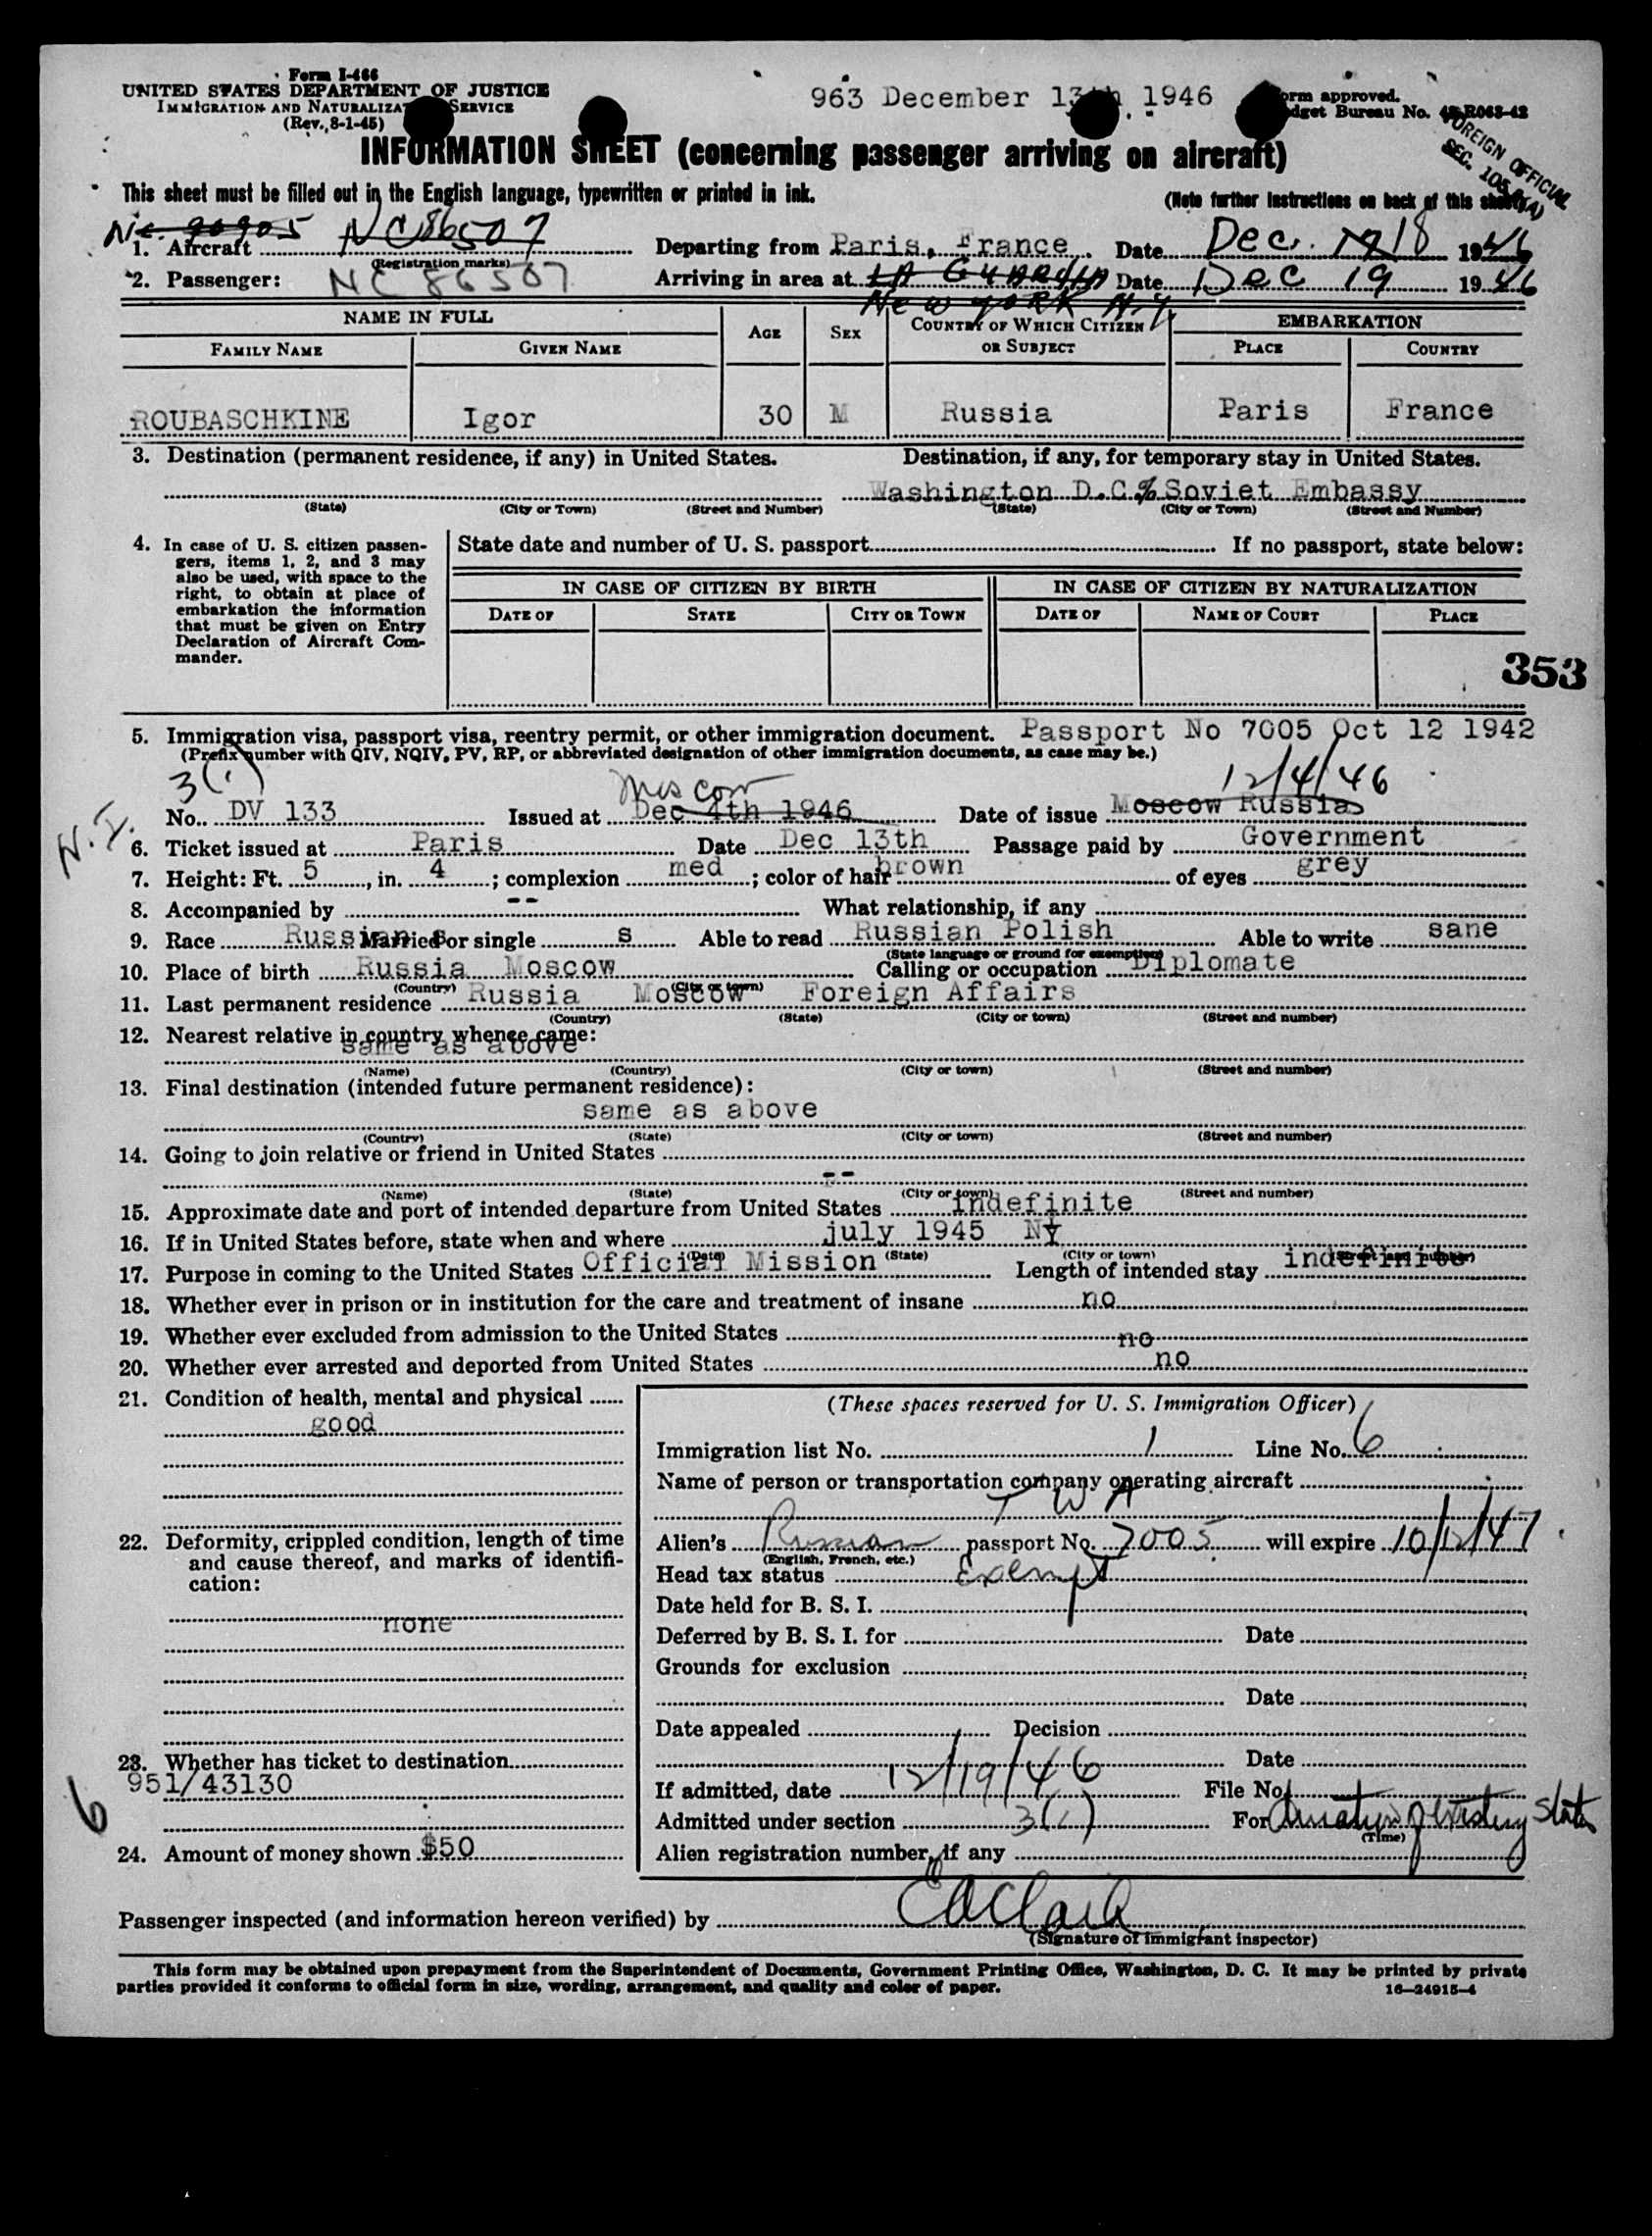 Form I-466
UNITED STATES DEPARTMENT OF JUSTICE
IMMIGRATION AND NATURALIZATION SERVICE
(Rev. 8-1-45)
963 December 13th 1946
Form approved.
Budget Bureau No. 43-R063-42
FOREIGN OFFICIAL
SEC.
INFORMATION SHEET (concerning passenger arriving on aircraft)
This sheet must be filled out in the English language, typewritten or printed in ink.
(Note further instructions on back of this sheet)
Nc. 90905 NC86507
1. Aircraft
(Registration marks)
Departing from Paris, France Date Dec. 18 1946
2. Passenger: NC 86507 Arriving in area at LA GUARDIA Date Dec 19 1946
New York N.Y.
NAME IN FULL
FAMILY NAME GIVEN NAME AGE SEX COUNTRY OF WHICH CITIZEN OR SUBJECT EMBARKATION PLACE COUNTRY
ROUBASCHKINE Igor 30 M Russia Paris France
3. Destination (permanent residence, if any) in United States. Destination, if any, for temporary stay in United States.
Washington D.C.% Soviet Embassy
(State) (City or Town) (Street and Number) (State) (City or Town) (Street and Number)
4. In case of U. S. citizen passengers, items 1, 2, and 3 may also be used, with space to the right, to obtain at place of embarkation the information that must be given on Entry Declaration of Aircraft Commander.
State date and number of U. S. passport If no passport, state below:
IN CASE OF CITIZEN BY BIRTH IN CASE OF CITIZEN BY NATURALIZATION
DATE OF STATE CITY OR TOWN DATE OF NAME OF COURT PLACE
353
5. Immigration visa, passport visa, reentry permit, or other immigration document. Passport No 7005 Oct 12 1942
(Prefix number with QIV, NQIV, PV, RP, or abbreviated designation of other immigration documents, as case may be.)
3(1) Moscow 12/4/46
No. DV 133 Issued at Dec 4th 1946 Date of issue Moscow Russia
6. Ticket issued at Paris Date Dec 13th Passage paid by Government
7. Height: Ft. 5, in. 4; complexion med; color of hair brown of eyes grey
8. Accompanied by -- What relationship, if any
9. Race Russian s Married or single s Able to read Russian Polish Able to write sane
(State language or ground for exemption)
10. Place of birth Russia Moscow Calling or occupation Diplomate
(Country) (City or town)
11. Last permanent residence Russia Moscow Foreign Affairs
(Country) (State) (City or town) (Street and number)
12. Nearest relative in country whence came:
same as above
(Name) (Country) (City or town) (Street and number)
13. Final destination (intended future permanent residence):
same as above
(Country) (State) (City or town) (Street and number)
14. Going to join relative or friend in United States
--
(Name) (State) (City or town) (Street and number)
15. Approximate date and port of intended departure from United States indefinite
16. If in United States before, state when and where july 1945 NY
(Date) (State) (City or town) (Street and number)
17. Purpose in coming to the United States Official Mission Length of intended stay indefinite
18. Whether ever in prison or in institution for the care and treatment of insane no
19. Whether ever excluded from admission to the United States no
20. Whether ever arrested and deported from United States no
21. Condition of health, mental and physical
good
22. Deformity, crippled condition, length of time and cause thereof, and marks of identification:
none
23. Whether has ticket to destination
951/43130
6
24. Amount of money shown $50
(These spaces reserved for U. S. Immigration Officer)
Immigration list No. 1 Line No. 6
Name of person or transportation company operating aircraft
T W A
Alien's Russian passport No. 7005 will expire 10/12/47
(English, French, etc.)
Head tax status Exempt
Date held for B. S. I.
Deferred by B. S. I. for Date
Grounds for exclusion
Date
Date appealed Decision
Date
If admitted, date 12/19/46 File No.
Admitted under section 3(1) For Duration of status
(Time)
Alien registration number, if any
Passenger inspected (and information hereon verified) by
(Signature of immigrant inspector)
This form may be obtained upon prepayment from the Superintendent of Documents, Government Printing Office, Washington, D. C. It may be printed by private
parties provided it conforms to official form in size, wording, arrangement, and quality and color of paper.
16—24915-4